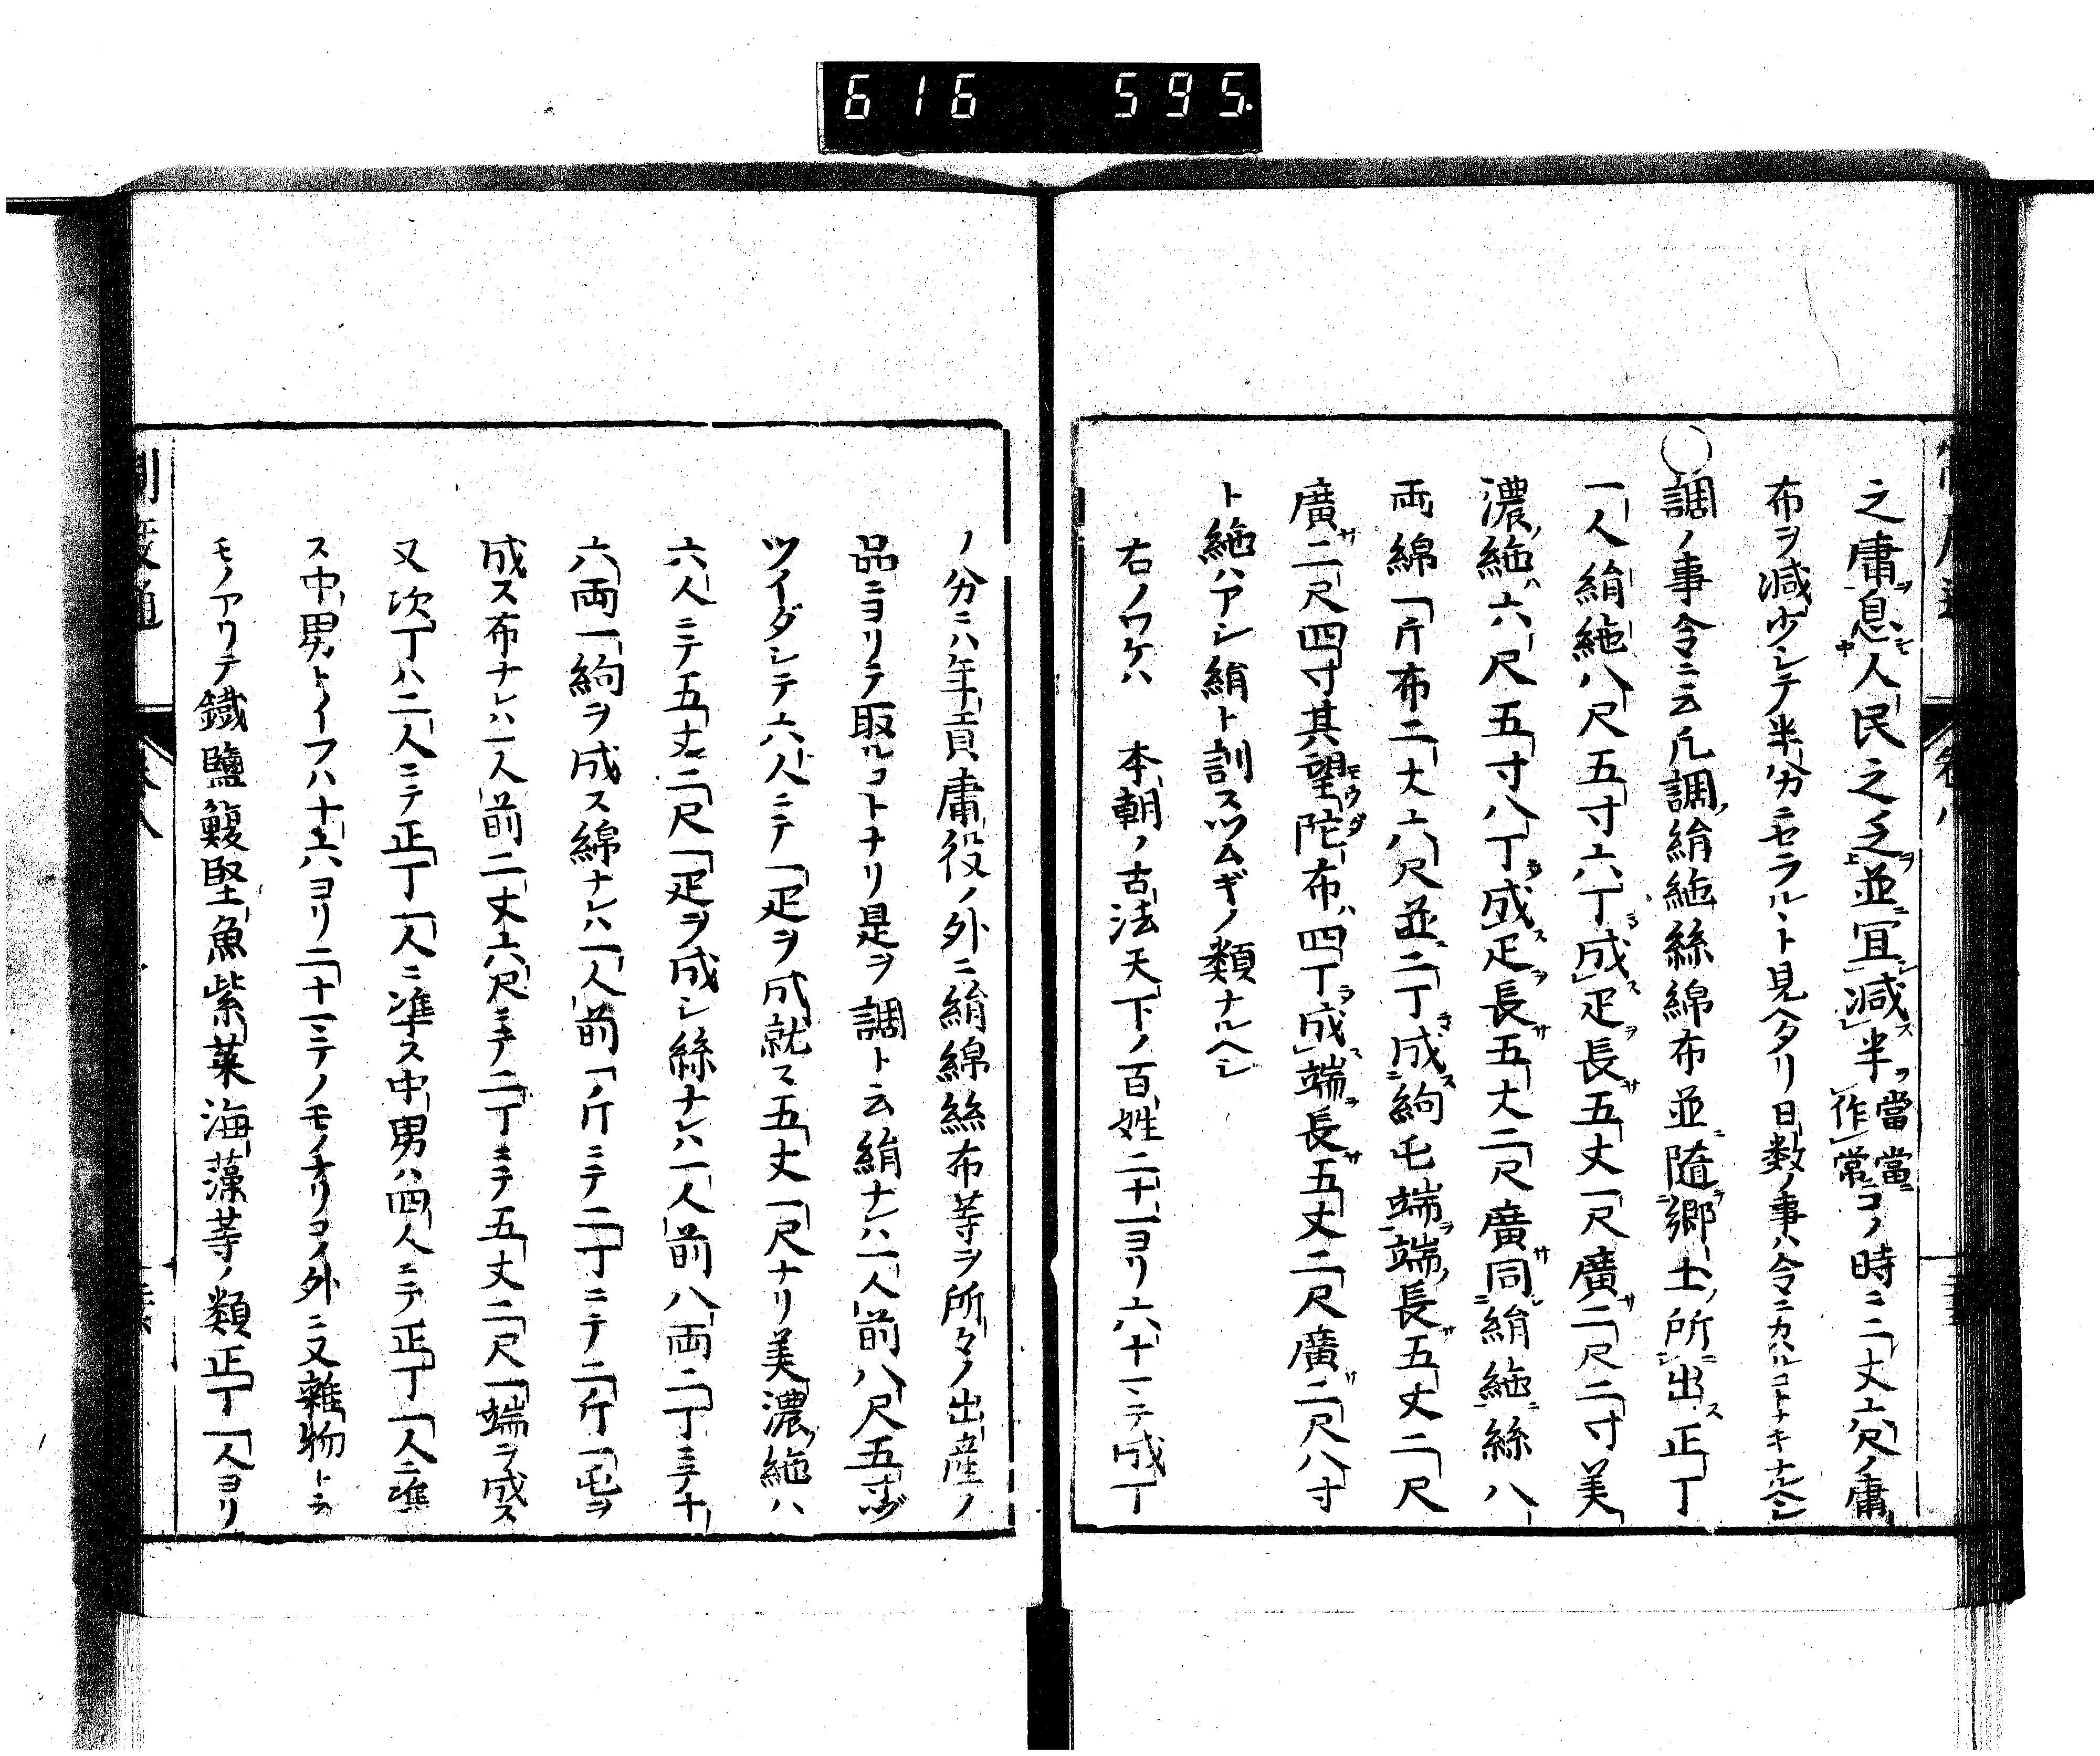 616 595.
之庸息人民之乏並宜減半當作常當コノ時ニ二丈六尺ノ庸
布ヲ減少シテ半分ニセラルヽト見ヘタリ日数ノ事ハ令ニカハルコトナキナルヘシ
○調ノ事令ニ云凡調絹絁絲綿布並隨郷土所出正丁
一人絹絁八尺五寸六丁成疋長五丈一尺廣二尺二寸美
濃絁六尺五寸八丁成疋長五丈二尺廣同絹絁絲八
両綿一斤布二丈六尺並二丁成絇屯端端長五丈二尺
廣二尺四寸其望陀布四丁成端長五丈二尺廣二尺八寸
ト絁ハアシ絹ト訓スツムギノ類ナルヘシ
右ノワケハ 本朝ノ古法天下ノ百姓二十一ヨリ六十マテ成丁
ノ分ニハ年貢庸役ノ外ニ絹綿絲布等ヲ所々ノ出産ノ
品ニヨリテ取ルコトナリ是ヲ調ト云絹ナレハ一人前八尺五寸ヅ
ツイダシテ六人ニテ一疋ヲ成就ス五丈一尺ナリ美濃絁ハ
六人ニテ五丈二尺一疋ヲ成シ絲ナレハ一人前八両二丁ニテ十
六両一絇ヲ成ス綿ナレハ一人前一斤ニテ二丁ニテ二斤一屯ヲ
成ス布ナレハ一人前二丈六尺ニテ二丁ニテ五丈二尺一端ヲ成ス
又次丁ハ二人ニテ正丁一人ニ準ス中男ハ四人ニテ正丁一人ニ準
ス中男トイフハ十六ヨリ二十マテノモノナリコノ外ニ又雜物トテ
モノアリテ鐵鹽鰒堅魚紫菜海藻等ノ類正丁一人ヨリ